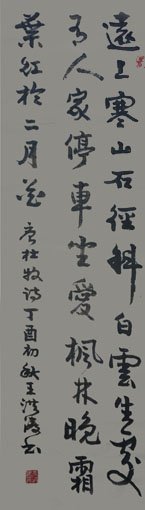 遠上寒山石徑斜白雲生處
有人家停車坐愛楓林晚霜
葉紅於二月花
唐杜牧詩丁酉初秋王洪濤书